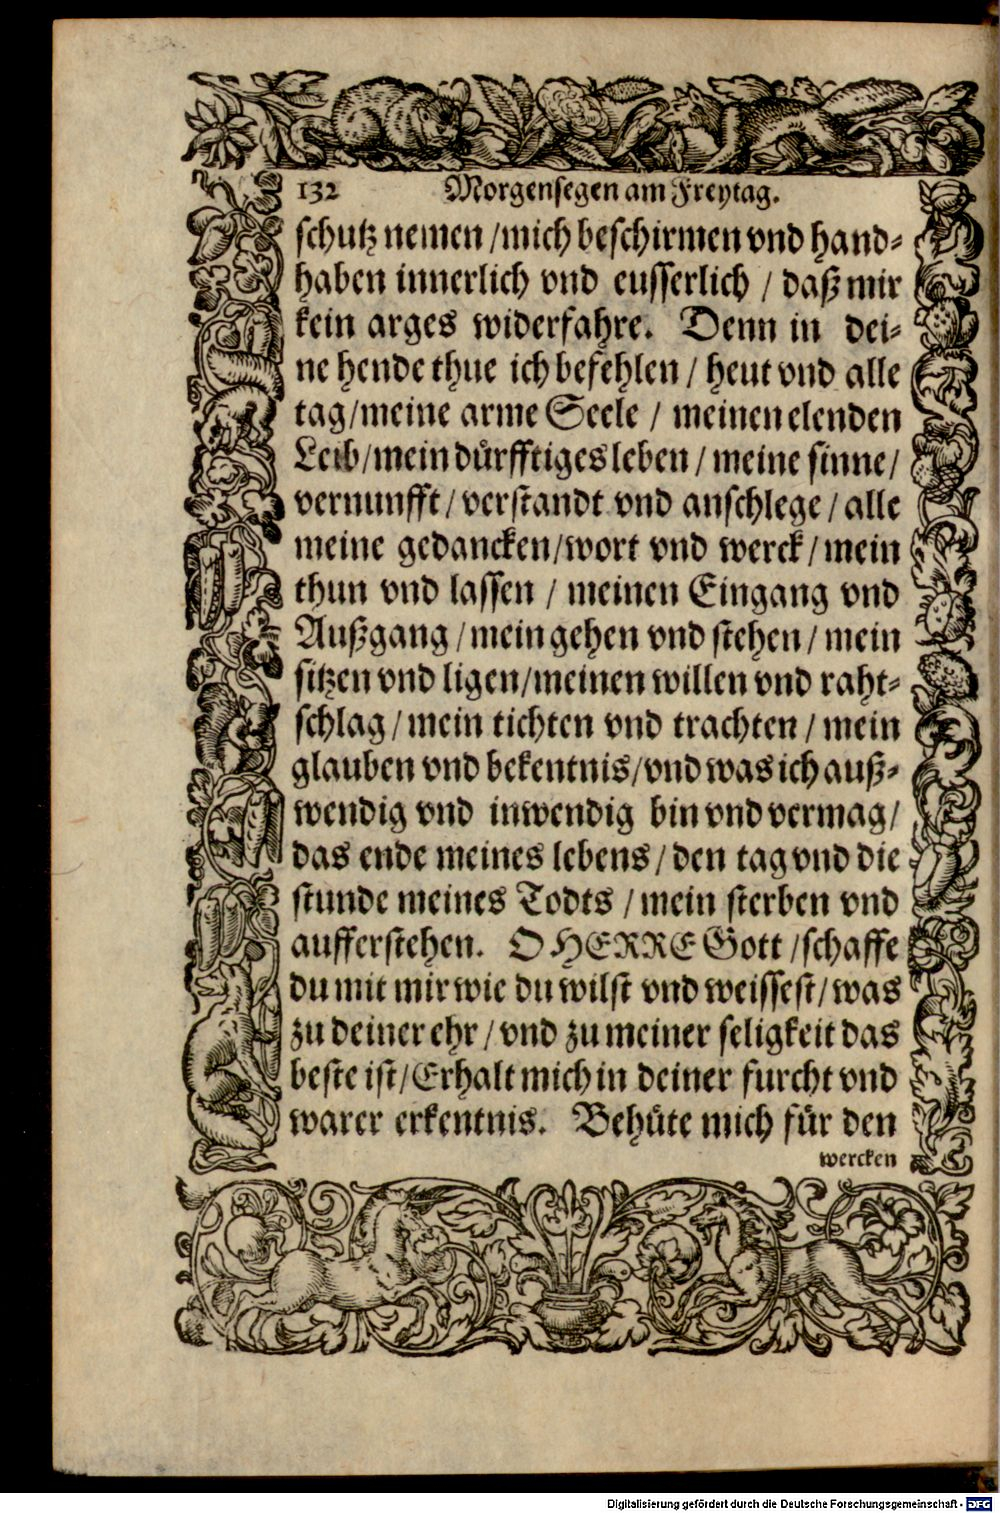 132 Morgensegen am Freytag.
schutz nemen / mich beschirmen vnd hand-
haben innerlich vnd eusserlich / daß mir
kein arges widerfahre. Denn in dei-
ne hende thue ich befehlen / heut vnd alle
tag / meine arme Seele / meinen elenden
Leib / mein důrfftiges leben / meine sinne /
vernunfft / verstandt vnd anschlege / alle
meine gedancken / wort vnd werck / mein
thun vnd lassen / meinen Eingang vnd
Außgang / mein gehen vnd stehen / mein
sitzen vnd ligen / meinen willen vnd raht-
schlag / mein tichten vnd trachten / mein
glauben vnd bekentnis / vnd was ich auß-
wendig vnd inwendig bin vnd vermag /
das ende meines lebens / den tag vnd die
stunde meines Todts / mein sterben vnd
aufferstehen. O HERRE Gott / schaffe
du mit mir wie du wilst vnd weissest / was
zu deiner ehr / vnd zu meiner seligkeit das
beste ist / Erhalt mich in deiner furcht vnd
warer erkentnis. Behüte mich für den
wercken
Digitalisierung gefördert durch die Deutsche Forschungsgemeinschaft - DFG